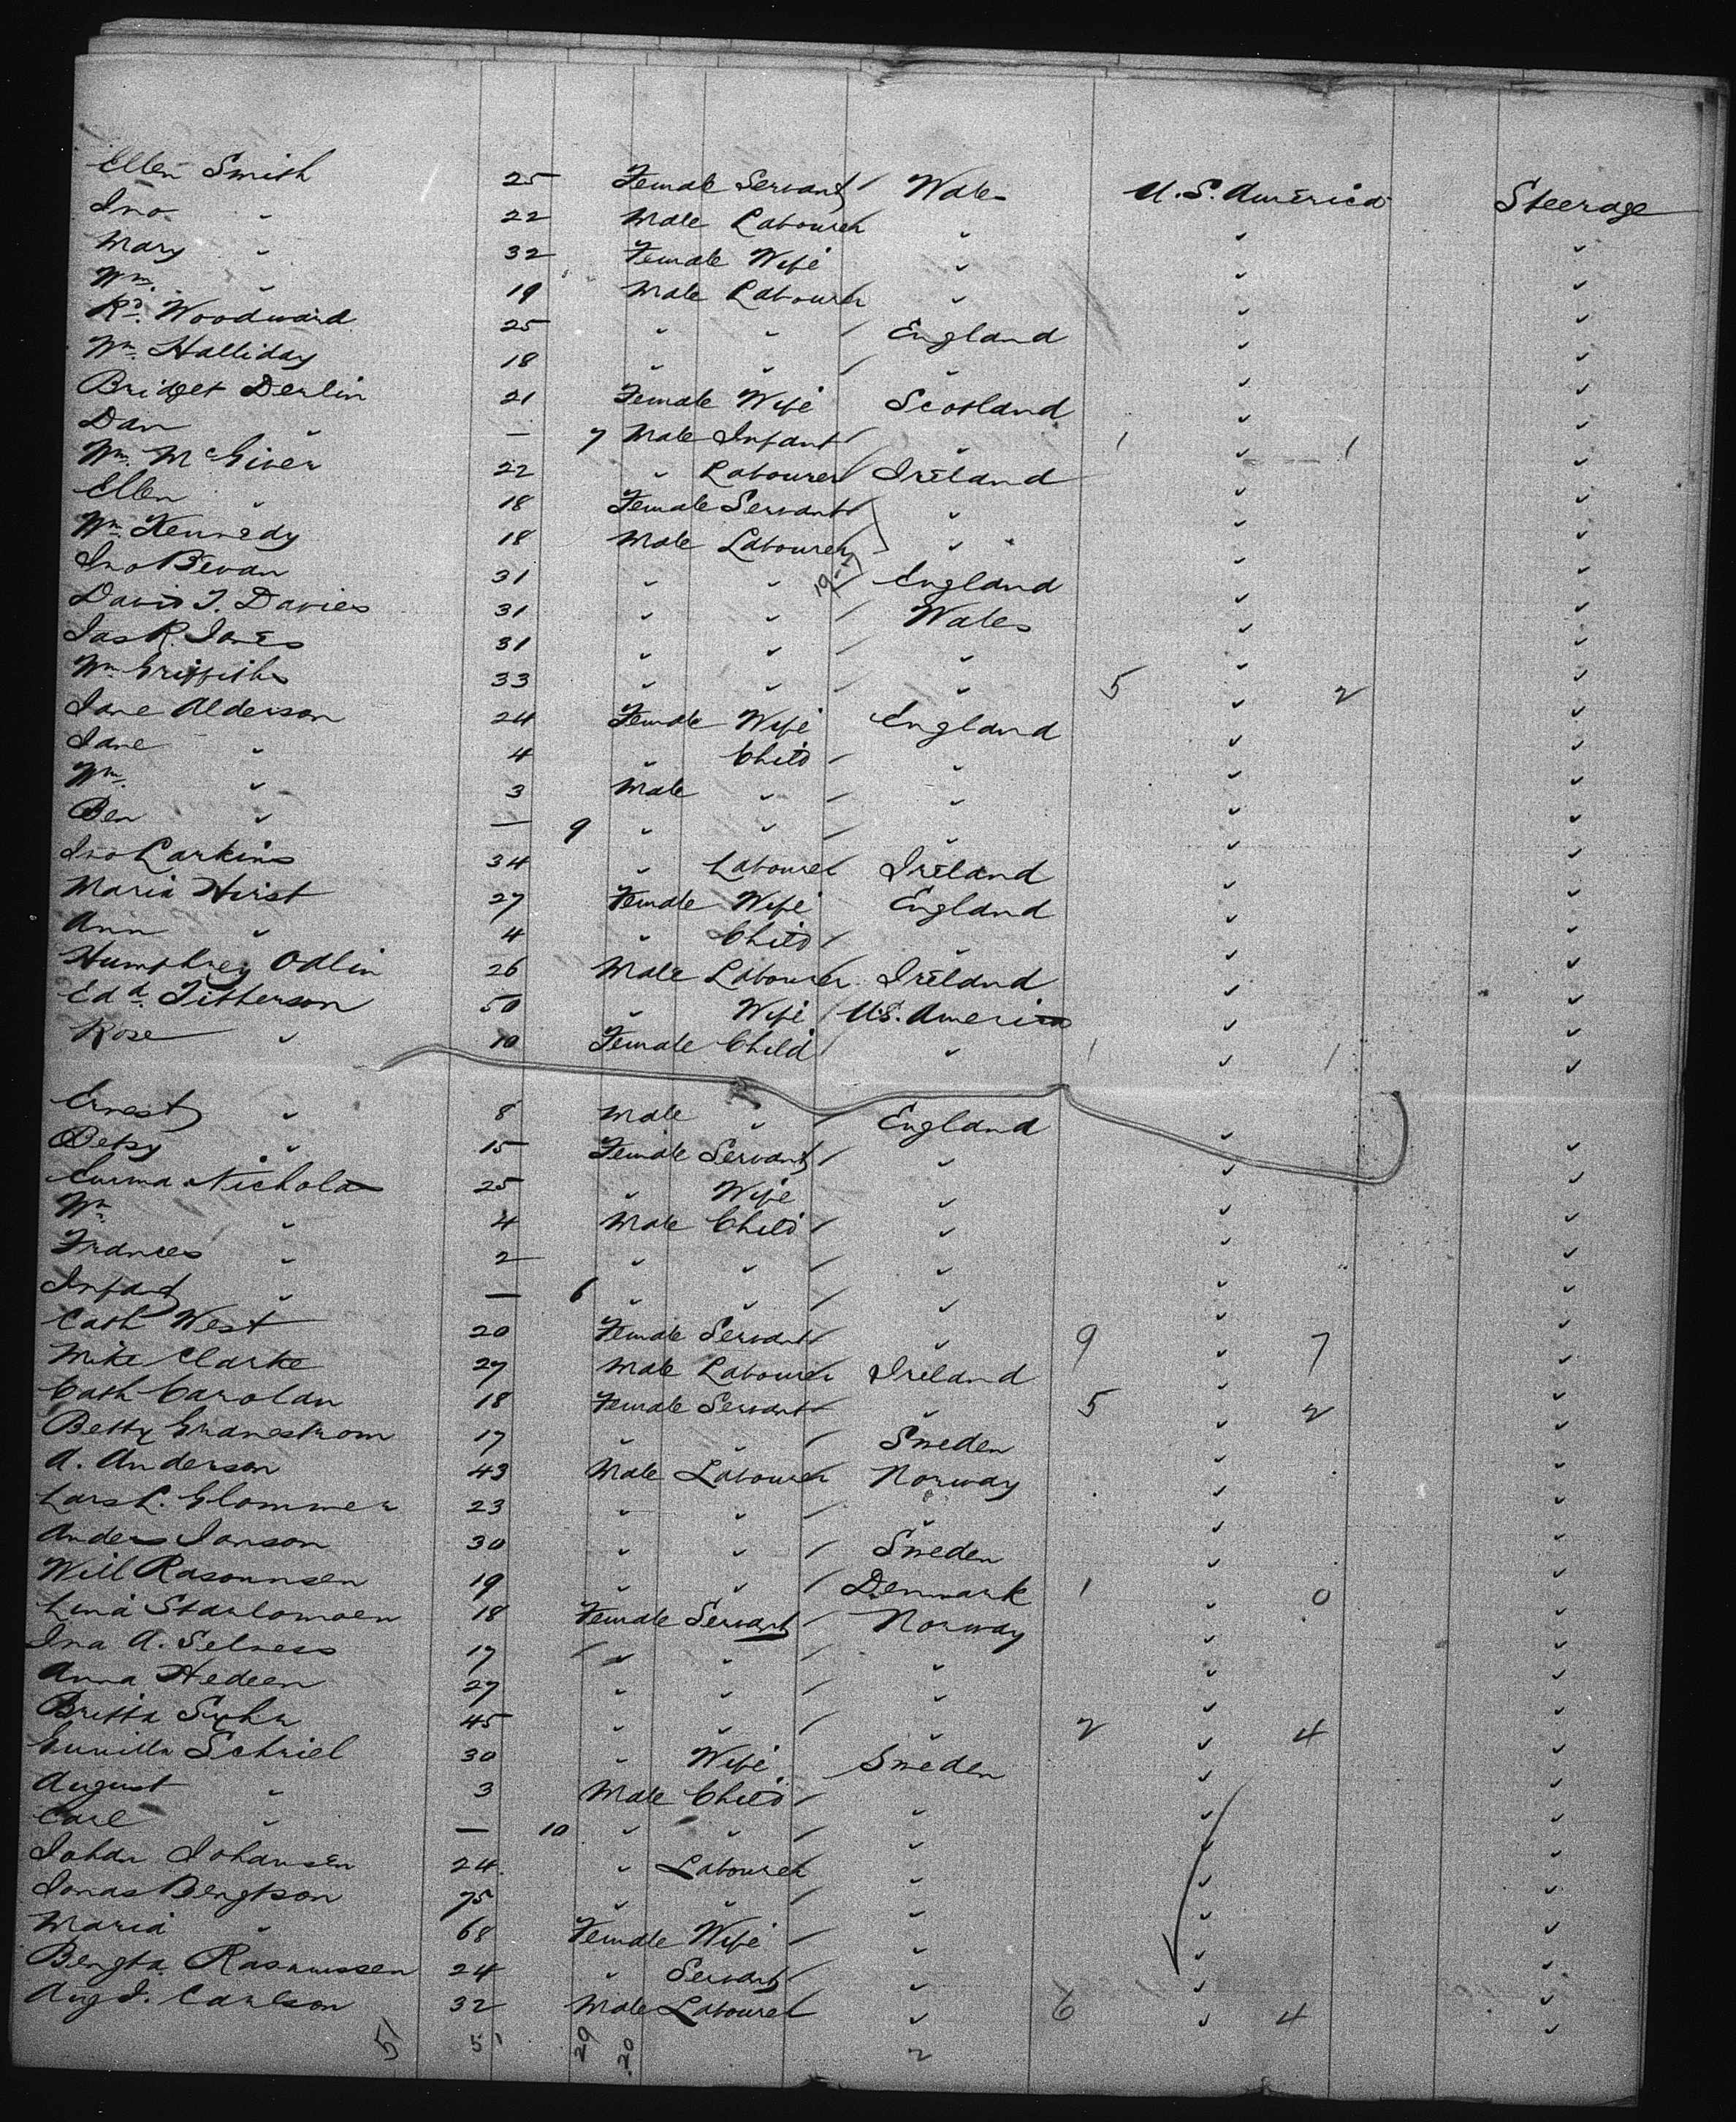 Ellen Smith 25 Female Servant / Wales U.S. America Steerage
Jno. " 22 Male Labourer " " "
Mary " 32 Female Wife " " "
Wm. " 19 Male Labourer " " "
Rd. Woodward 25 " " / England " "
Wm. Halliday 18 " " / " " "
Bridget Derlin 21 Female Wife Scotland " "
Dan " — 7 Male Infant / " 1 " 1 "
Wm. McGiver 22 " Labourer Ireland " "
Ellen " 18 Female Servant " " "
Wm. Kennedy 18 Male Labourer " " "
Jno Bevan 31 " " / England " "
David J. Davies 31 " " / Wales " "
Jas R. Jones 31 " " / " " "
Wm. Griffiths 33 " " / " 5 " 2 "
Jane Alderson 24 Female Wife England " "
Jane " 4 " Child / " " "
Wm. " 3 Male " / " " "
Ben " — 9 " " / " " "
Jno Larkins 34 " Labourer Ireland " "
Maria Hirst 27 Female Wife England " "
Ann " 4 " Child / " " "
Humphrey Odlin 26 Male Labourer Ireland " "
Edd. Titherson 50 " Wife / U.S. America " "
Rose " 10 Female Child / " 1 " 1 "
Ernest " 8 Male " / England " "
Betsy " 15 Female Servant / " " "
Emma Nicholas 25 " Wife " " "
Wm. " 4 Male Child / " " "
Frances " 2 " " / " " "
Infant " — 6 " " / " " "
Cath West 20 Female Servant / " 9 " 7 "
Mike Clarke 27 Male Labourer Ireland " "
Cath Carolan 18 Female Servant " 5 " 2 "
Betty Granestrom 17 " " / Sweden " "
A. Anderson 43 Male Labourer Norway " "
Lars L. Glommer 23 " " / " " "
Anders Janson 30 " " / Sweden " "
Will Rasounsen 19 " " / Denmark 1 " 0 "
Lina Starlomoen 18 Female Servant / Norway " "
Ina A. Selness 17 " " / " " "
Anna Hedeen 27 " " / " " "
Britta 45 " " / " 2 " 4 "
Gunilla Schriel 30 " Wife Sweden " "
August " 3 Male Child / " " "
Carl " — 10 " " / " " "
Johan Johansen 24 " Labourer " " "
Jonas Bengtson 75 " " / " " "
Maria " 68 Female Wife / " " "
Bengta Rasmussen 24 " Servant / " " "
Aug J. Carlson 32 Male Labourer " 6 " 4 "
51 51 29 20 2